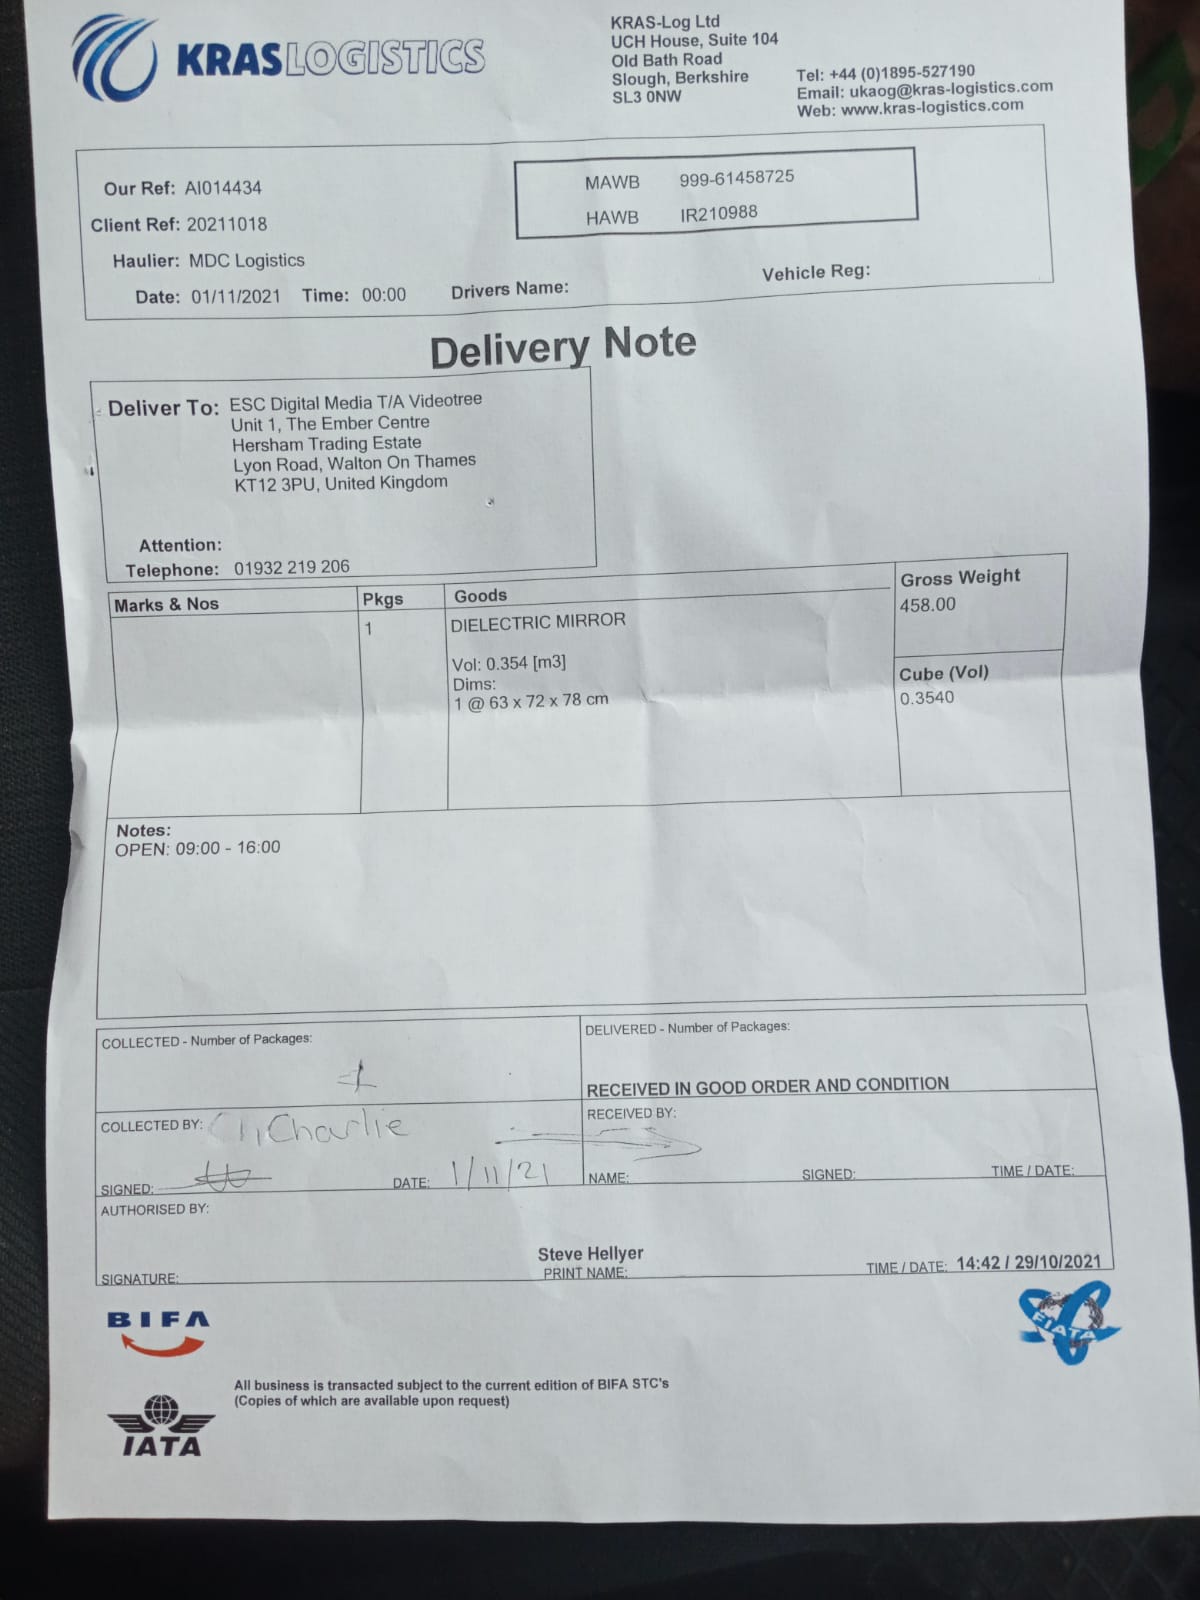 KRAS LOGISTICS
KRAS-Log Ltd
UCH House, Suite 104
Old Bath Road
Slough, Berkshire
SL3 0NW
Tel: +44 (0)1895-527190
Email: ukaog@kras-logistics.com
Web: www.kras-logistics.com
Our Ref: AI014434
Client Ref: 20211018
Haulier: MDC Logistics
Date: 01/11/2021 Time: 00:00 Drivers Name: Vehicle Reg:
MAWB 999-61458725
HAWB IR210988
Delivery Note
Deliver To: ESC Digital Media T/A Videotree
Unit 1, The Ember Centre
Hersham Trading Estate
Lyon Road, Walton On Thames
KT12 3PU, United Kingdom
Attention:
Telephone: 01932 219 206
Marks & Nos Pkgs Goods Gross Weight
458.00
1 DIELECTRIC MIRROR
Vol: 0.354 [m3]
Dims:
1 @ 63 x 72 x 78 cm
Cube (Vol)
0.3540
Notes:
OPEN: 09:00 - 16:00
COLLECTED - Number of Packages:
1
DELIVERED - Number of Packages:
RECEIVED IN GOOD ORDER AND CONDITION
COLLECTED BY: Charlie
RECEIVED BY:
SIGNED: DATE: 1/11/21
NAME: SIGNED: TIME / DATE:
AUTHORISED BY:
Steve Hellyer
SIGNATURE: PRINT NAME: TIME / DATE: 14:42 / 29/10/2021
BIFA
FIATA
IATA
All business is transacted subject to the current edition of BIFA STC's
(Copies of which are available upon request)